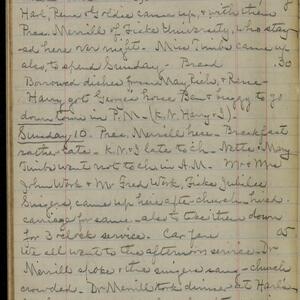 Hat, Rene & Goldie came up, & with them
Pres. Merrill of Fiske University, who stay-
ed here over night. Miss Timbs came up
also, to spend Sunday - Bread 30
Borrowed dishes from May Rich, & Rene -
Harry got George's horse Ben & buggy to go
down town in P.M. - (K.N. Harry & I).
Sunday 10. Pres. Merrill here - Breakfast
rather late - K.N. & I late to ch - Nettie & Mary
Timbs went not to ch in A.M. Mr & Mrs
John Work & Mr Fred Work, Fiske Jubilee
Singers, came up here after church - hired
carriage for same - also to take them down
for 3 o'clock service. Car fare 05
We all went to the afternoon service - Dr
Merrill spoke & the singers sang - church
crowded - Dr Merrill took dinner at